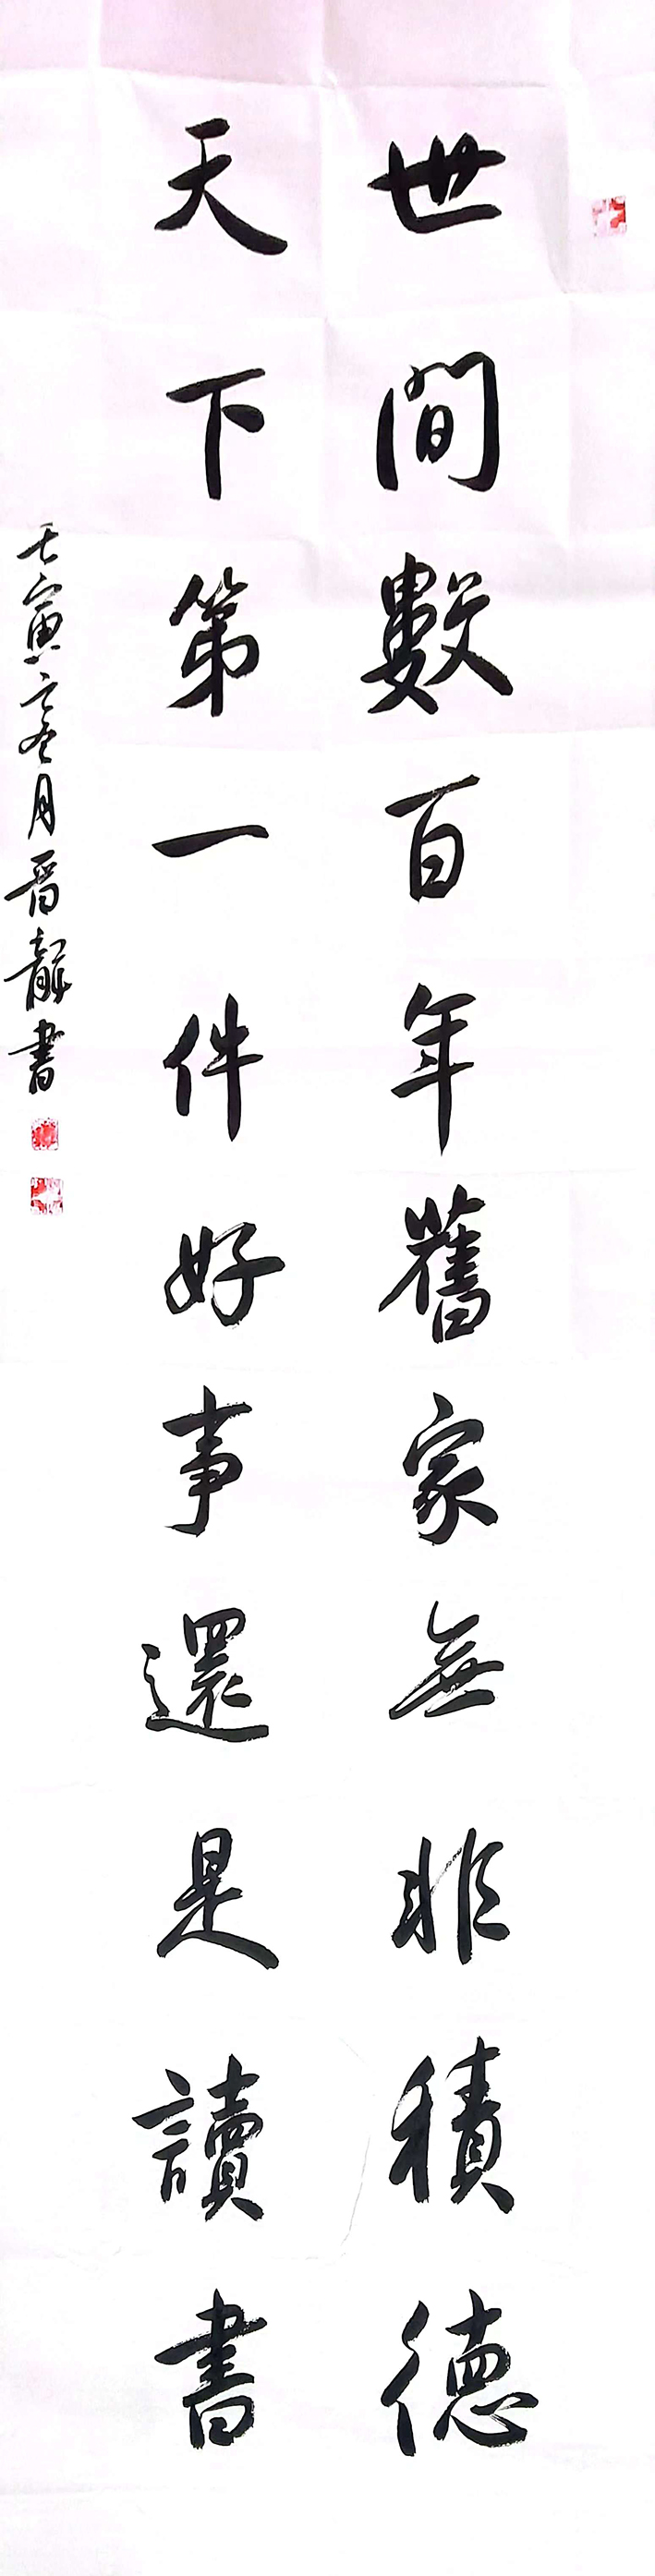 世間數百年舊家無非積德
天下第一件好事還是讀書
壬寅之冬月晋龍書